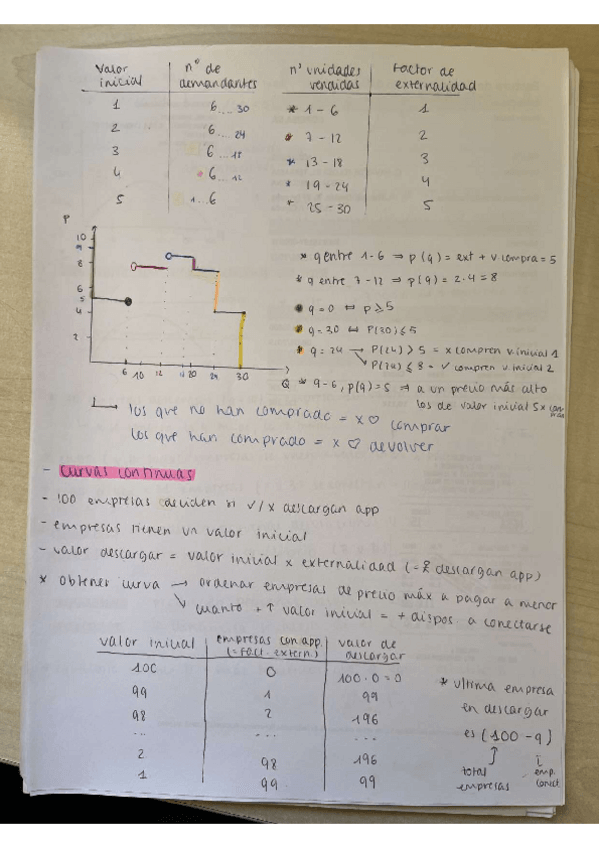 Valor inicial | nº de demandantes | nº unidades vendidas | Factor de externalidad
1 | 6 .... 30 | * 1 - 6 | 1
2 | 6 .... 24 | * 7 - 12 | 2
3 | 6 .... 18 | * 13 - 18 | 3
4 | * 6 .... 12 | * 19 - 24 | 4
5 | 1...6 | * 25 - 30 | 5
P
10
9
8
6
5
4
2
6 10 12 18 20 24 30
Q
* q entre 1-6 ⇒ p(q) = ext + v compra = 5
* q entre 7-12 ⇒ p(q) = 2·4 = 8
q=0 ⇔ p ≥ 5
q=30 ⇔ P(30) ≤ 5
* q = 24 → P(24) > 5 = x compren v.inicial 1
P(24) ≤ 8 = ✓ compren v.inicial 2
* q-6, p(q)=5 ⇒ a un precio más alto
los de valor inicial 5 x compran
los que no han comprado = x ♡ comprar
los que han comprado = x ♡ devolver
- curvas continuas
- 100 empresas deciden si ✓/x descargan app
- empresas tienen un valor inicial
- valor descargar = valor inicial x externalidad (= descargan app)
* obtener curva → ordenar empresas de precio máx a pagar a menor
cuanto + ↑ valor inicial = + dispos a conectarse
valor inicial | empresas con app (= fact. extern.) | valor de descargar
100 | 0 | 100·0=0
99 | 1 | 99
98 | 2 | 196
... | ... | ...
2 | 98 | 196
1 | 99 | 99
* ultima empresa
en descargar
es (100 - q)
total empresas
emp. conect.